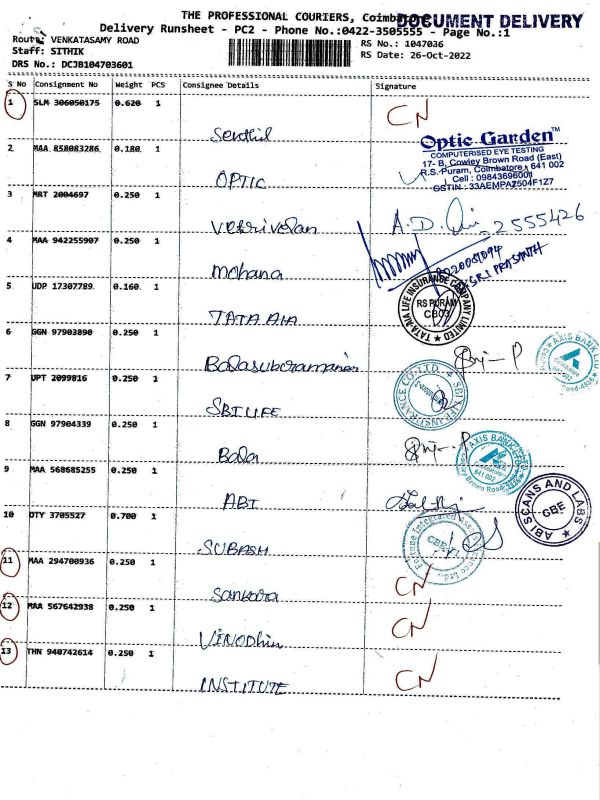 THE PROFESSIONAL COURIERS, Coimbatore
DOCUMENT DELIVERY
Delivery Runsheet - PC2 - Phone No.:0422-3505555 - Page No.:1
Route: VENKATASAMY ROAD
Staff: SITHIK
DRS No.: DCJB104703601
RS No.: 1047036
RS Date: 26-Oct-2022
S No Consignment No Weight PCS Consignee Details Signature
1 SLM 306050175 0.620 1 CN
Senthil
2 MAA 858083286 0.180 1
OPTIC
Optic Garden™
COMPUTERISED EYE TESTING
17- B, Cowley Brown Road (East)
R.S. Puram, Coimbatore - 641 002
Cell : 09843696001
GSTIN : 33AEMPA2504F1Z7
3 MRT 2004697 0.250 1
Vetrivelan
A.D. 2555426
4 MAA 942255907 0.250 1
Mohana
SRI PRASANTH
5 UDP 17307789 0.160 1
TATA AIA
TATA-AIA LIFE INSURANCE COMPANY LIMITED
RS PURAM
CB03
6 GGN 97903890 0.250 1
Balasubramanian
AXIS BANK LTD
7 UPT 2099816 0.250 1
SBI LIFE
SBI LIFE INSURANCE CO. LTD.
8 GGN 97904339 0.250 1
Bala
AXIS BANK LTD
Coimbatore
641 002
Cowley Brown Road
9 MAA 568685255 0.250 1
ABI
ABI SCANS AND LABS
CBE
10 DTY 3705527 0.700 1
SUBASH
Fortune Integrated Assets Finance Ltd.,
CBE
11 MAA 294700936 0.250 1 CN
Sankara
12 MAA 567642938 0.250 1 CN
VINODHIN
13 THN 940742614 0.250 1 CN
INSTITUTE